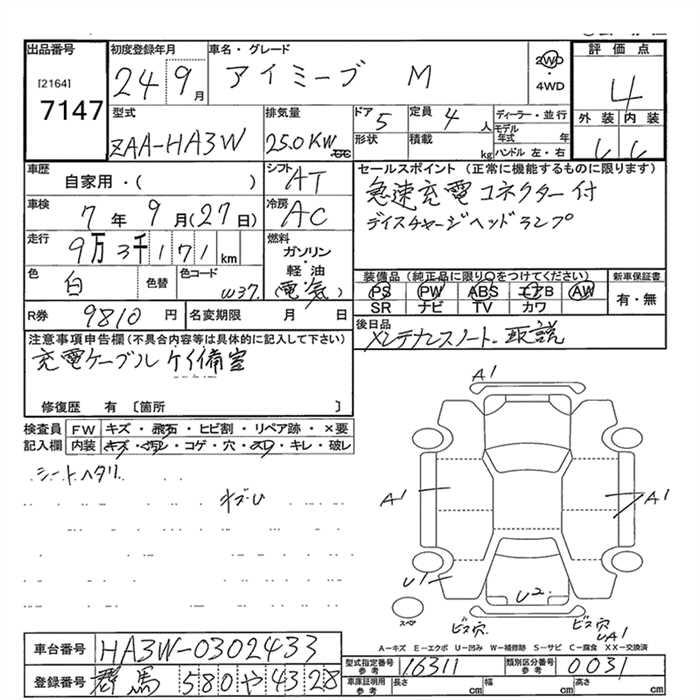 出品番号
[2164]
7147
初度登録年月
24 9月
車名・グレード
アイミーブ M
2WD
・
4WD
評価点
4
型式
ZAA-HA3W
排気量
25.0KW
ドア
5
形状
定員
4人
積載 kg
ディーラー・並行
モデル年式 年
ハンドル 左・右
外装 内装
車歴
自家用・( )
シフト
AT
車検
7年9月(27日)
冷房
AC
走行
9万3千171km
燃料
ガソリン
・
軽油
(電気)
色
白
色替
色コード
W37
R券 9810円
名変期限 月 日
セールスポイント (正常に機能するものに限ります)
急速充電コネクター付
ディスチャージヘッドランプ
装備品(純正品に限り○をつけてください)
PS PW ABS エアB AW
SR ナビ TV カワ
新車保証書
有・無
後日品
メンテナンスノート、取説
注意事項申告欄(不具合内容等は具体的に記入して下さい)
充電ケーブル ケイ備室
修復歴 有 〔箇所 〕
検査員記入欄
FW キズ・飛石・ヒビ割・リペア跡・×要
内装 キズ・汚れ・コゲ・穴・スレ・キレ・破レ
シートヘタリ
A1
A1
A1
U1
U2
スペア
ビス穴
ビス穴
UA1
A−キズ E−エクボ U−凹み W−補修跡 S−サビ C−腐食 XX−交換済
車台番号 HA3W-0302433
登録番号 群馬 580 や 4328
型式指定番号 参考 16311
類別区分番号 参考 0031
車庫証明用 参考 長さ cm 幅 cm 高さ cm